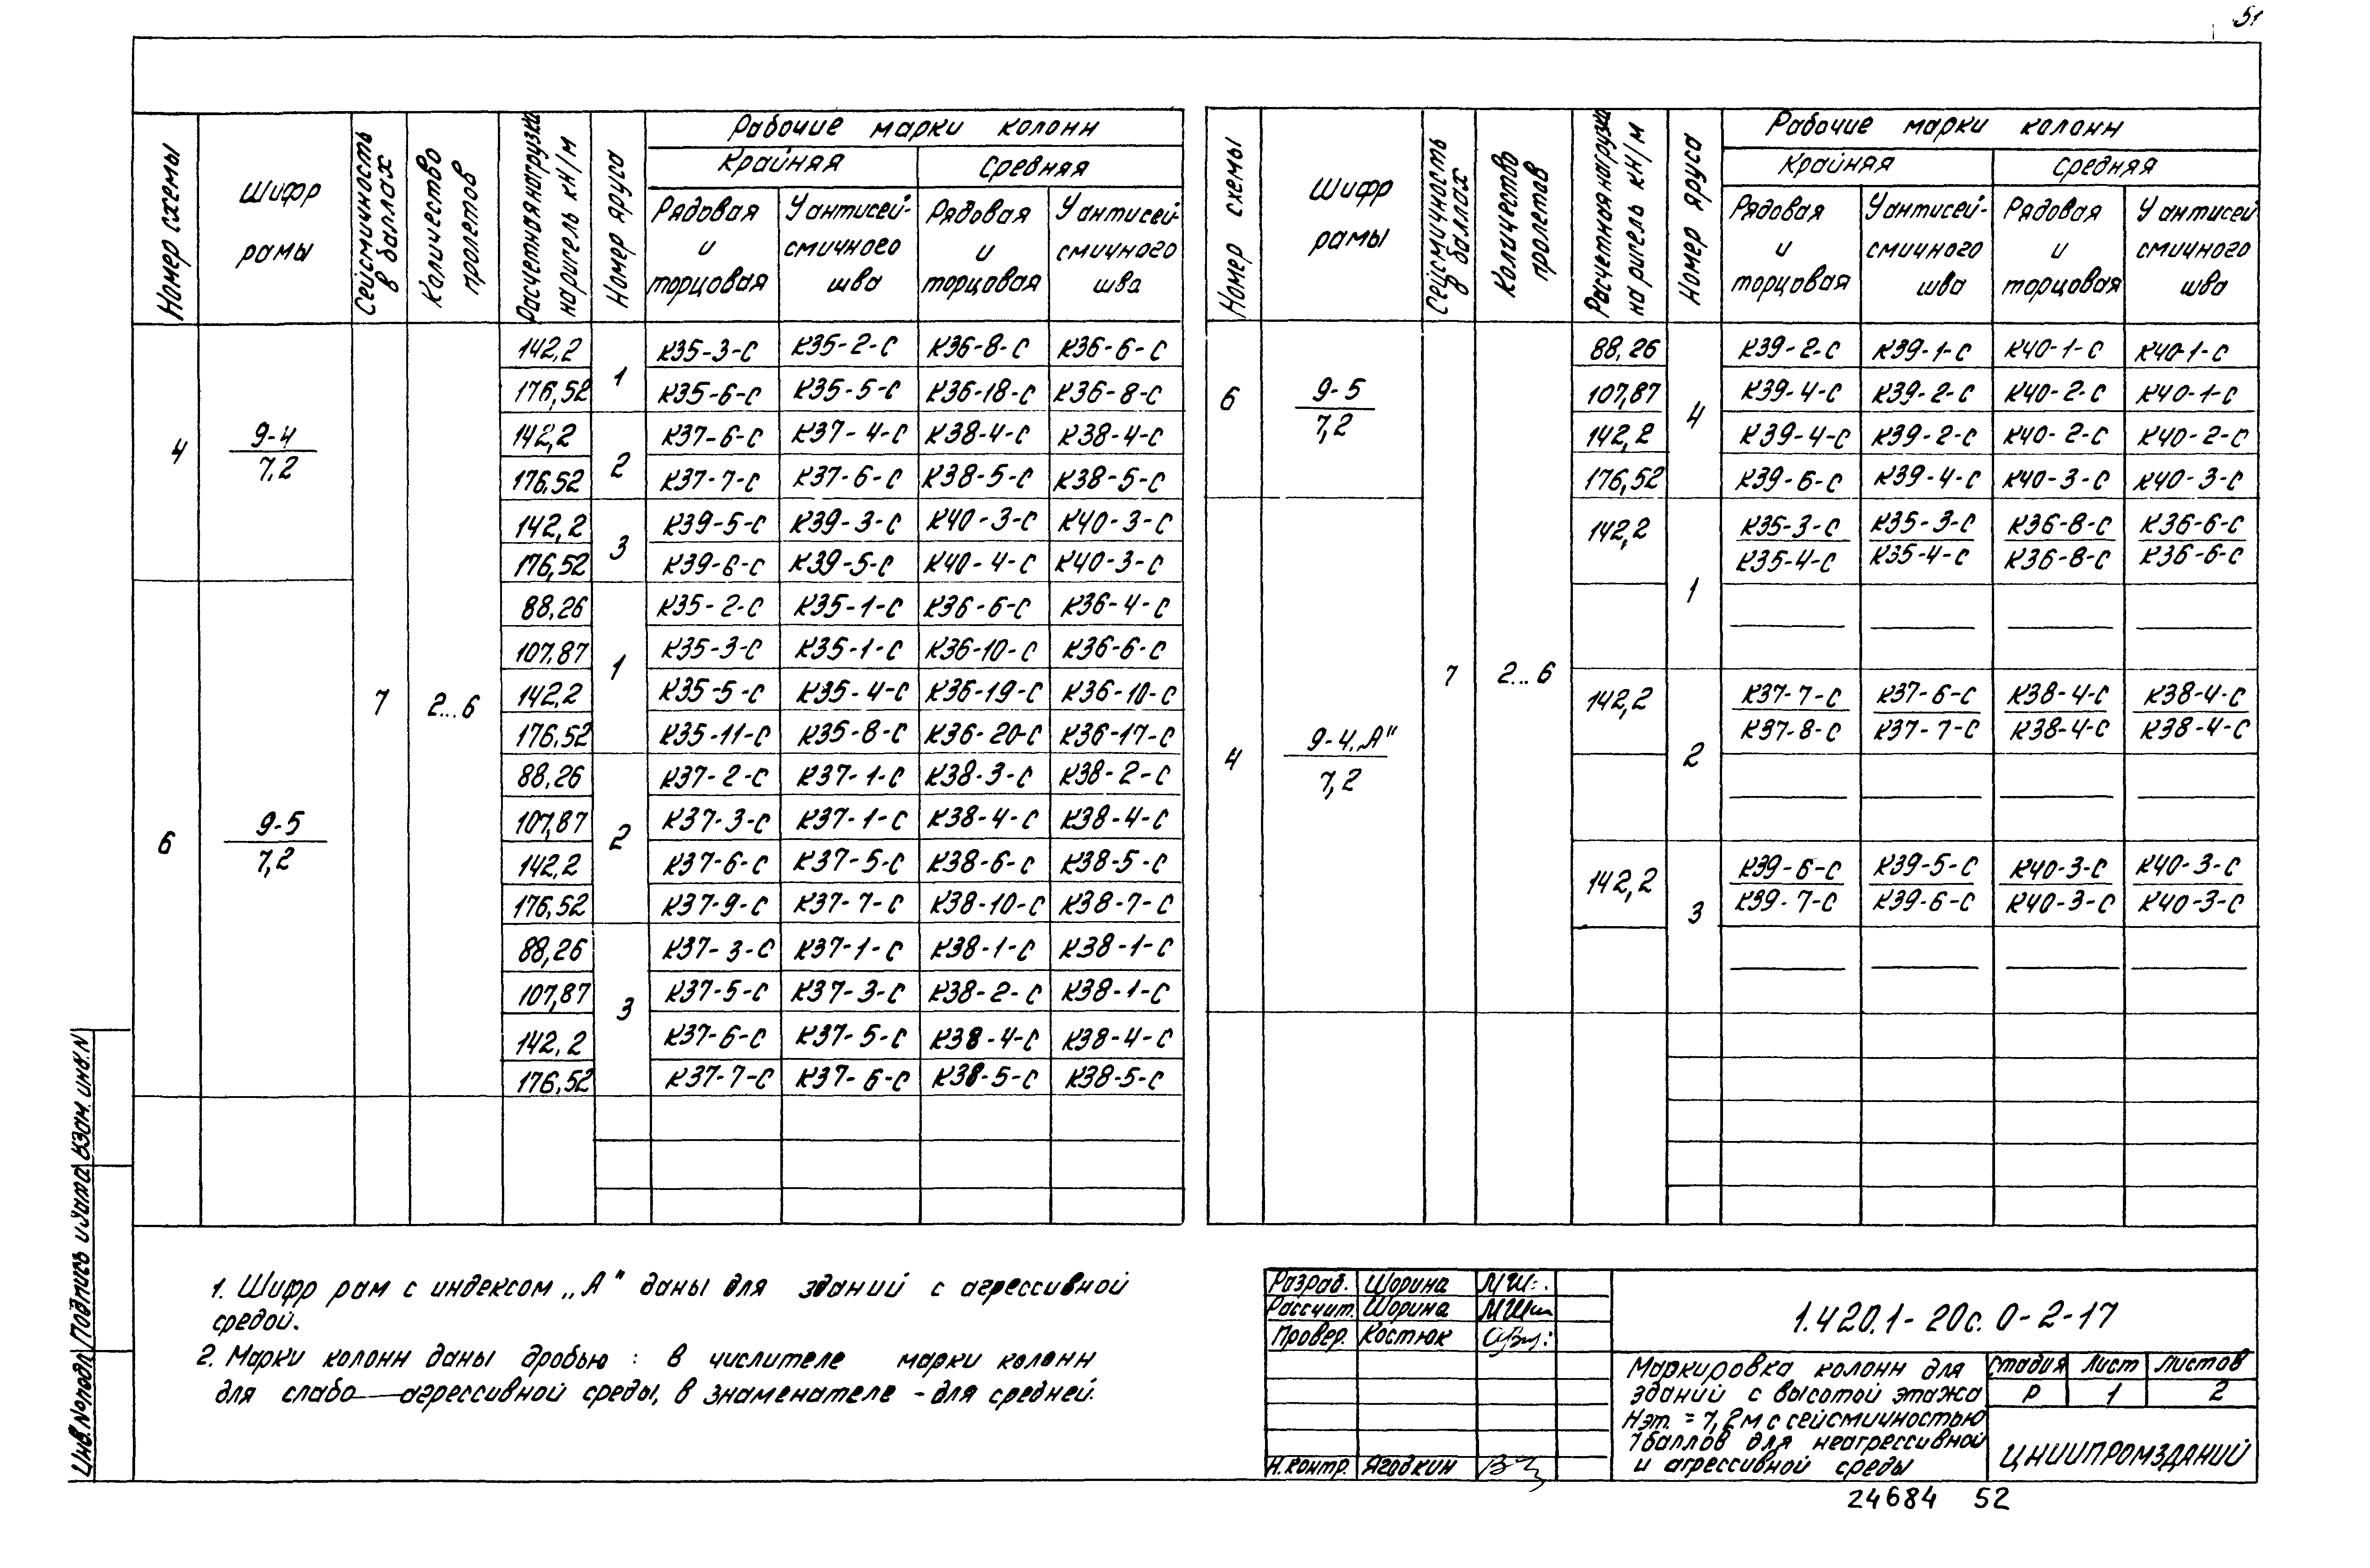 51
Номер схемы | Шифр рамы | Сейсмичность в баллах | Количество пролетов | Расчетная нагрузка на ригель кН/м | Номер яруса | Рабочие марки колонн
Крайняя | Средняя
Рядовая и торцовая | У антисейсмичного шва | Рядовая и торцовая | У антисейсмичного шва
4 | 9-4 / 7,2 | 7 | 2...6
142,2 | 1 | К35-3-С | К35-2-С | К36-8-С | К36-6-С
176,52 | К35-6-С | К35-5-С | К36-18-С | К36-8-С
142,2 | 2 | К37-6-С | К37-4-С | К38-4-С | К38-4-С
176,52 | К37-7-С | К37-6-С | К38-5-С | К38-5-С
142,2 | 3 | К39-5-С | К39-3-С | К40-3-С | К40-3-С
176,52 | К39-6-С | К39-5-С | К40-4-С | К40-3-С
6 | 9-5 / 7,2
88,26 | 1 | К35-2-С | К35-1-С | К36-6-С | К36-4-С
107,87 | К35-3-С | К35-1-С | К36-10-С | К36-6-С
142,2 | К35-5-С | К35-4-С | К36-19-С | К36-10-С
176,52 | К35-11-С | К35-8-С | К36-20-С | К36-17-С
88,26 | 2 | К37-2-С | К37-1-С | К38-3-С | К38-2-С
107,87 | К37-3-С | К37-1-С | К38-4-С | К38-4-С
142,2 | К37-6-С | К37-5-С | К38-6-С | К38-5-С
176,52 | К37-9-С | К37-7-С | К38-10-С | К38-7-С
88,26 | 3 | К37-3-С | К37-1-С | К38-1-С | К38-1-С
107,87 | К37-5-С | К37-3-С | К38-2-С | К38-1-С
142,2 | К37-6-С | К37-5-С | К38-4-С | К38-4-С
176,52 | К37-7-С | К37-6-С | К38-5-С | К38-5-С
Номер схемы | Шифр рамы | Сейсмичность в баллах | Количество пролетов | Расчетная нагрузка на ригель кН/м | Номер яруса | Рабочие марки колонн
Крайняя | Средняя
Рядовая и торцовая | У антисейсмичного шва | Рядовая и торцовая | У антисейсмичного шва
6 | 9-5 / 7,2 | 7 | 2...6
88,26 | 4 | К39-2-С | К39-1-С | К40-1-С | К40-1-С
107,87 | К39-4-С | К39-2-С | К40-2-С | К40-1-С
142,2 | К39-4-С | К39-2-С | К40-2-С | К40-2-С
176,52 | К39-6-С | К39-4-С | К40-3-С | К40-3-С
4 | 9-4„А" / 7,2
142,2 | 1 | К35-3-С | К35-3-С | К36-8-С | К36-6-С
К35-4-С | К35-4-С | К36-8-С | К36-6-С
142,2 | 2 | К37-7-С | К37-6-С | К38-4-С | К38-4-С
К37-8-С | К37-7-С | К38-4-С | К38-4-С
142,2 | 3 | К39-6-С | К39-5-С | К40-3-С | К40-3-С
К39-7-С | К39-6-С | К40-3-С | К40-3-С
1. Шифр рам с индексом „А" даны для зданий с агрессивной
средой.
2. Марки колонн даны дробью: в числителе марки колонн
для слабо—агрессивной среды, в знаменателе - для средней.
Разраб. Шорина
Рассчит. Шорина
Провер. Костюк
Н.контр. Ягодкин
1.420.1-20с. 0-2-17
Маркировка колонн для
зданий с высотой этажа
Нэт. = 7,2м с сейсмичностью
7 баллов для неагрессивной
и агрессивной среды
Стадия Лист Листов
Р 1 2
ЦНИИПРОМЗДАНИЙ
24684 52
Инв.№подл. Подпись и дата Взам. инв.N